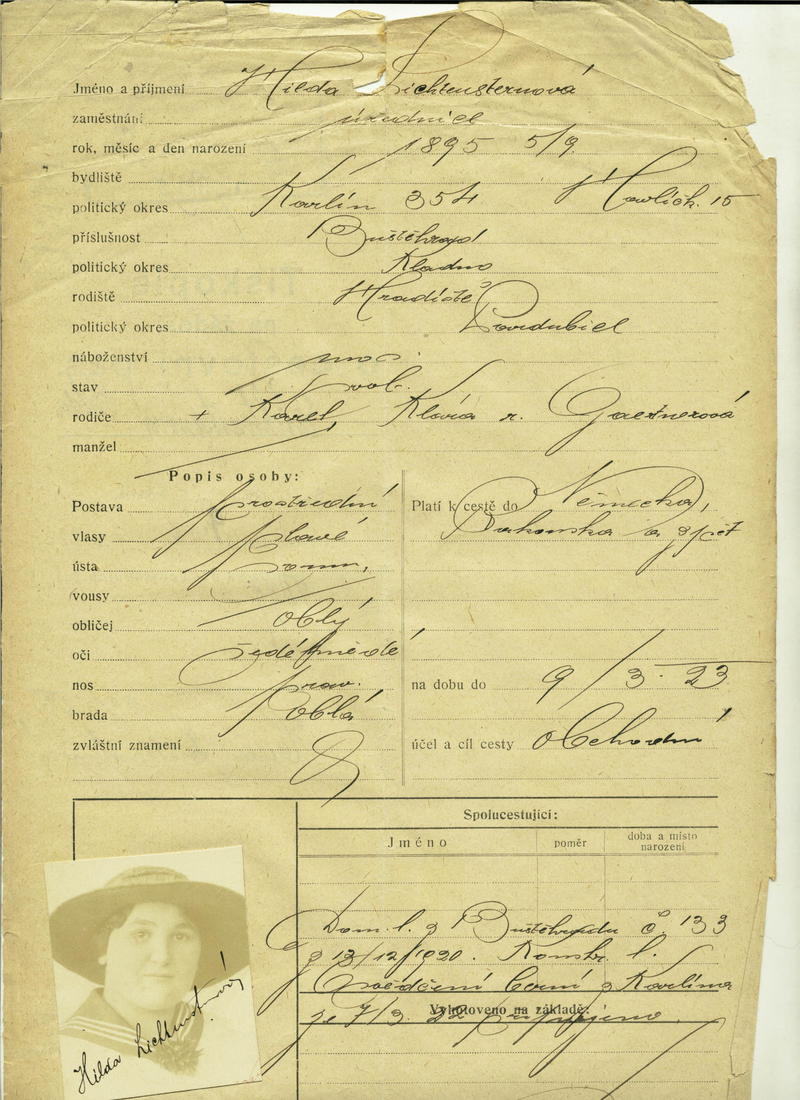 Jméno a příjmení Hilda Lichtensternová
zaměstnání úřednice
rok, měsíc a den narození 1895 5/9
bydliště
politický okres Karlín 354 Havlíčk. 15
příslušnost Buštěhrad
politický okres Kladno
rodiště Hradiště
politický okres Pardubice
náboženství moj.
stav svob.
rodiče + Karel, Klára r. Gaertnerová
manžel
Popis osoby:
Postava prostřední
vlasy plavé
ústa soum.
vousy
obličej oblý
oči šedé
nos prav.
brada oblá
zvláštní znamení
Platí k cestě do Německa,
Rakouska a zpět
na dobu do 9/3. 23
účel a cíl cesty obchodní
Spolucestující:
Jméno poměr doba a místo narození
Dom. l. z Buštěhradu č. 133
z 13/12/1920. Komstr. l.
Osvědčení berní z Karlína
Vyhotoveno na základě:
ze 7/3. 22 připojeno.
Hilda Lichtensternová